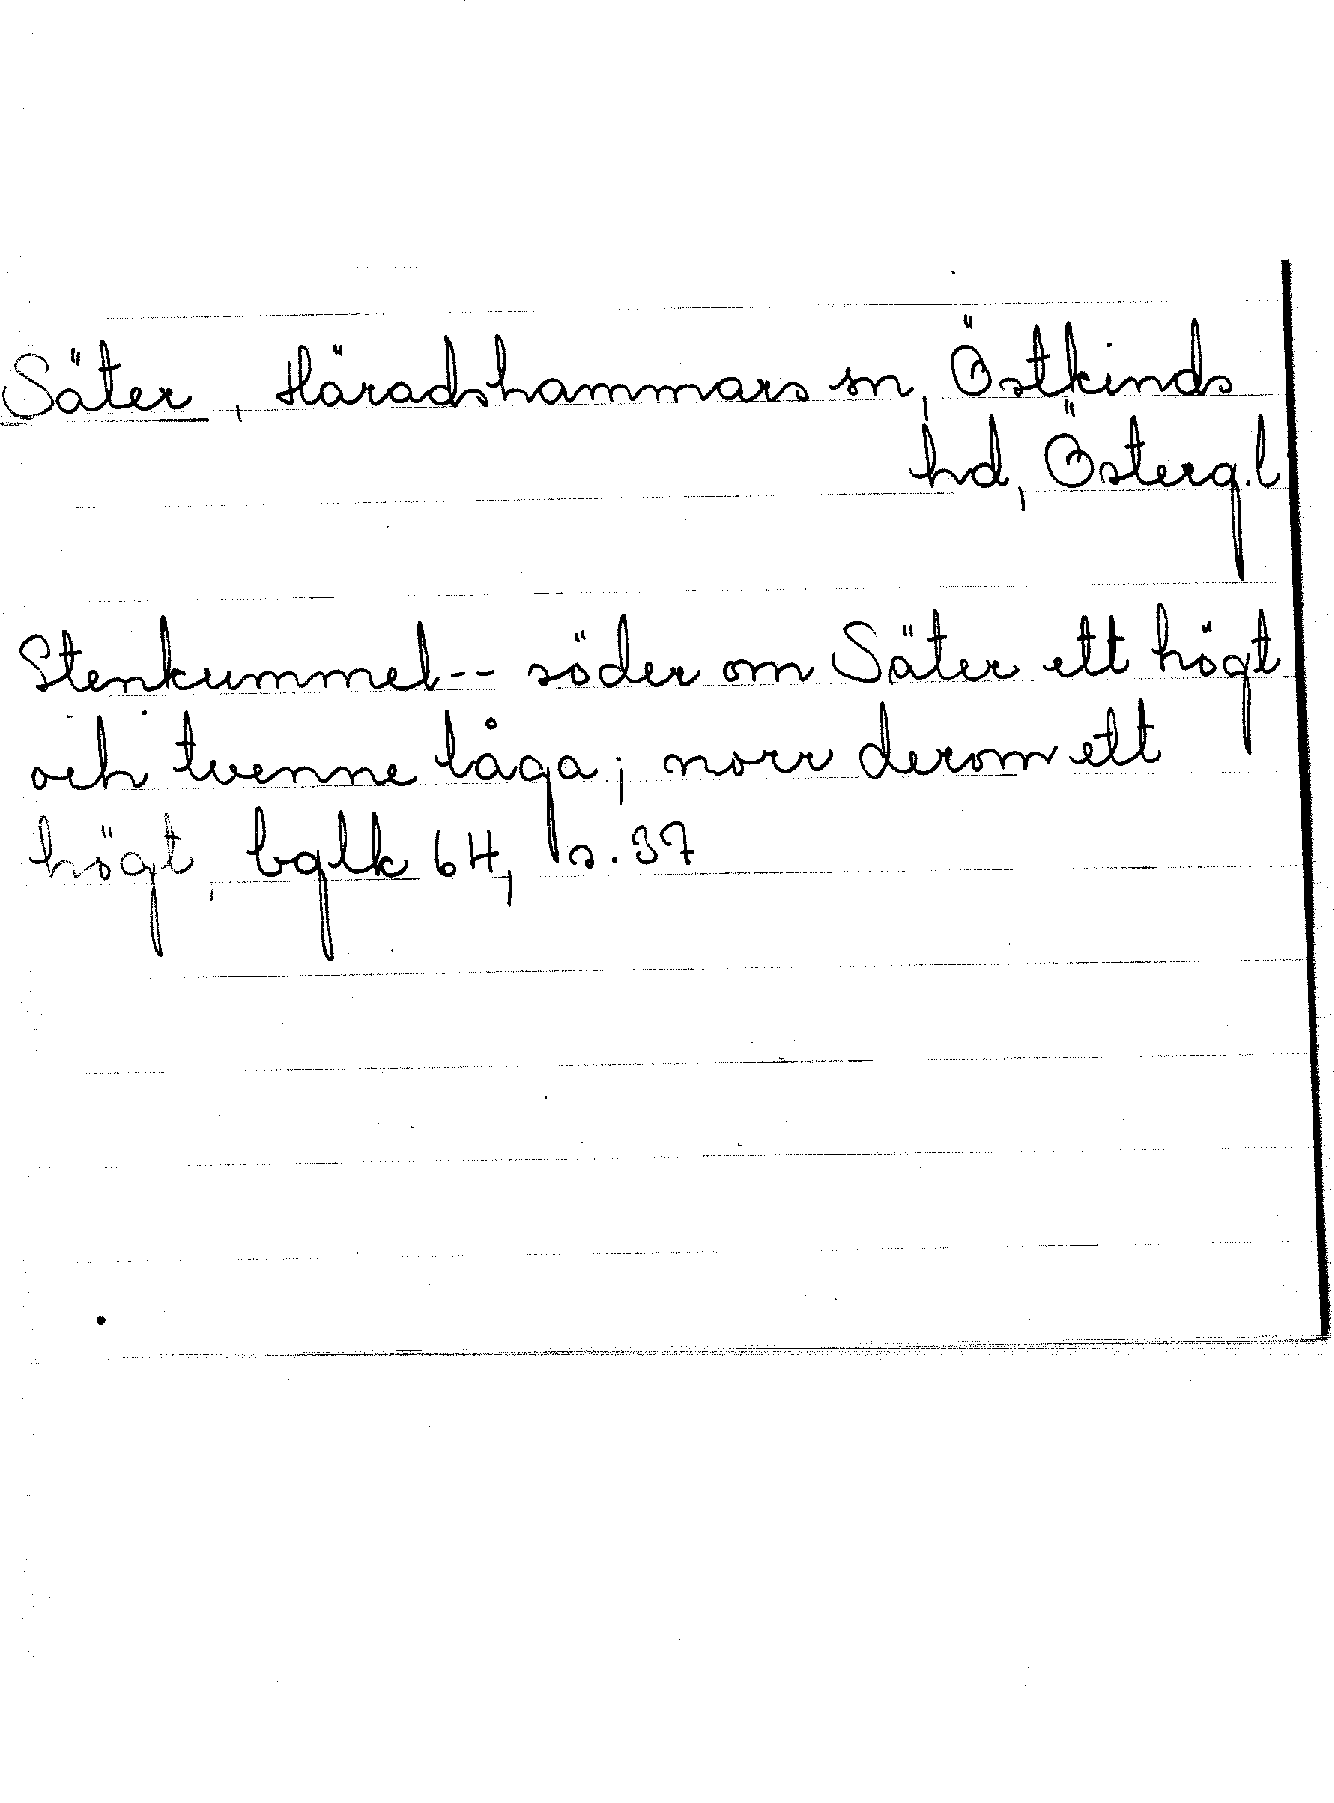 Säter, Häradshammars sn, Östkinds
hd, Österg.l
Stenkummel-- söder om Säter ett högt
och tvenne låga; norr derom ett
högt, bglk 64, s. 37